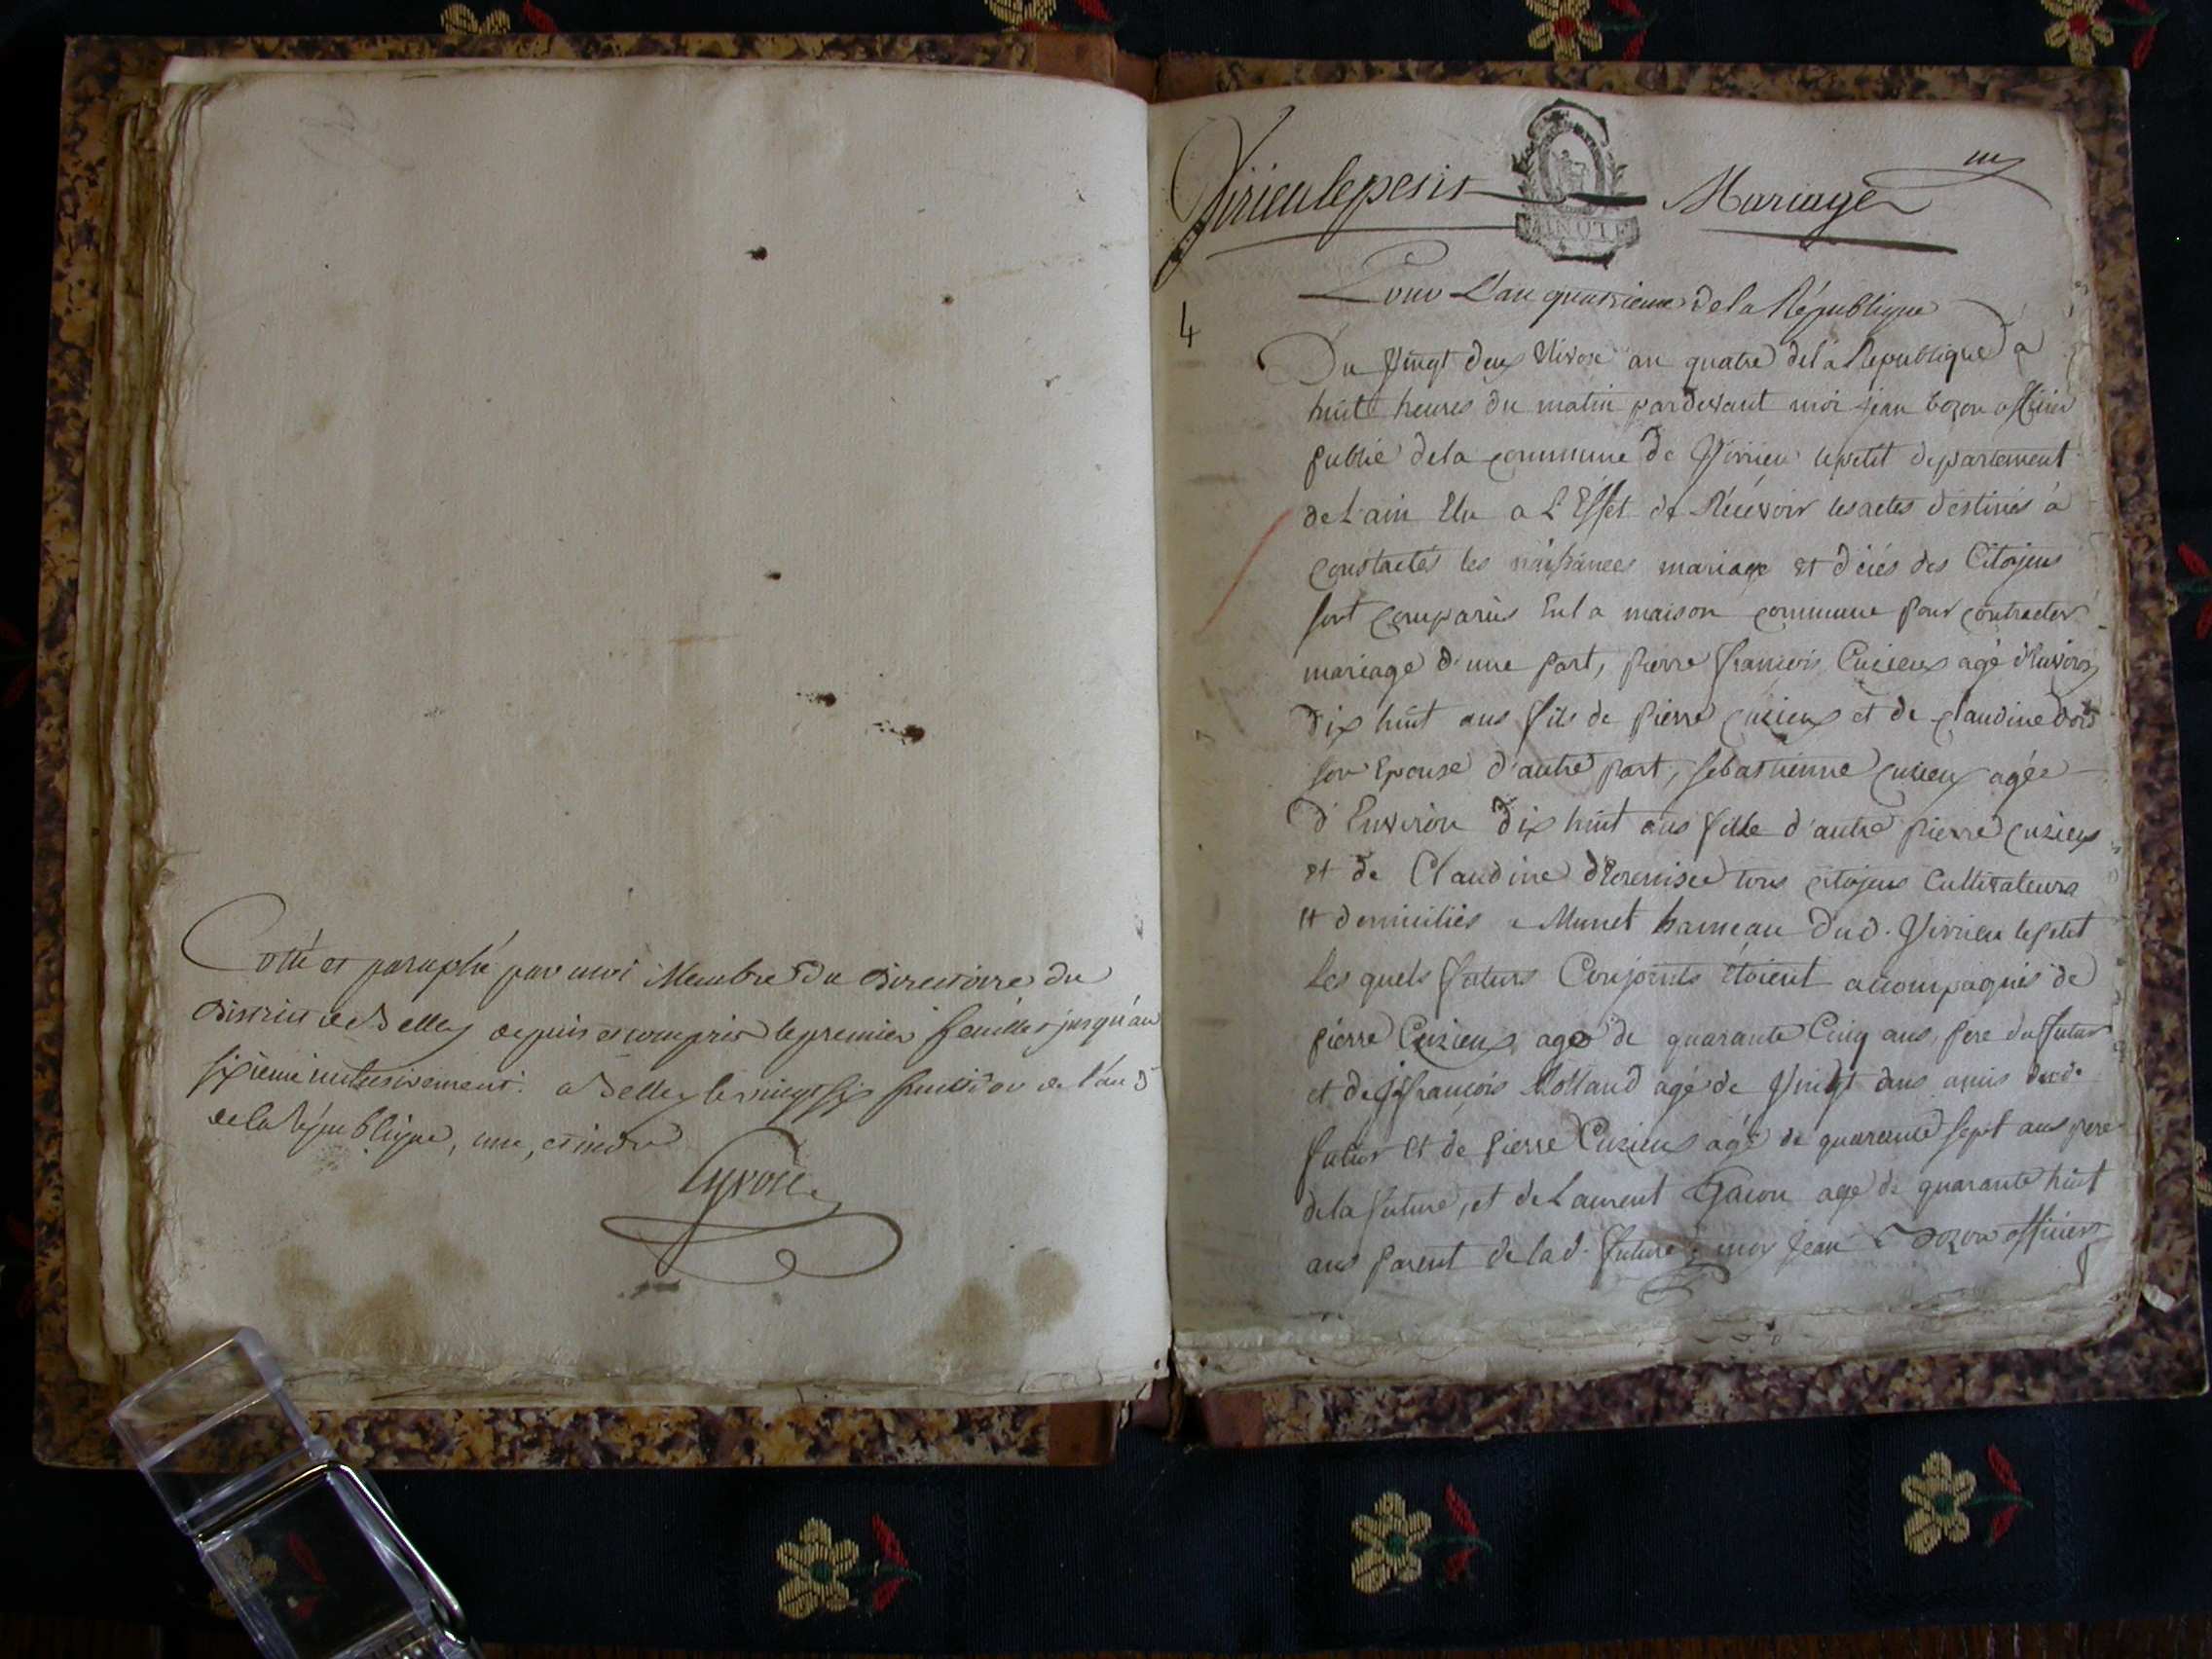 Cotté et paraphé par moi Membre du Directoire du
District de Belley depuis et compris le premier feuillet jusqu'au
sixième inclusivement. a Belley le vingt six fructidor de l'an 3
de la République, une, et indiv
Virieu le petit Mariage
MINUTE
Pour L'an quatrieme de la République
4
Du Vingt deux Nivose an quatre de la Republique a
huit heures du matin pardevant moi jean bozon officier
public dela commune de Virrieu lepetit departement
de L'ain Elu a L'Effet de Récévoir les actes déstinés à
constactés les naissances mariage et décés des Citoyens
sont comparus En la maison commune pour contracter
mariage d'une part, pierre francois Cuzieux agé d'Environ
dix huit ans fils de pierre cuzieux et de claudine
son Epouse d'autre part, sebastienne cuzieux agée
d'Environ dix huit ans fille d'autre pierre cuzieux
et de Claudine tous citoyens Cultivateurs
et domiciliés a Munet hameau dud. Virrieu lepetit
Lesquels futurs Conjoints étoient accompagnés de
pierre Cuzieux agé de quarante Cinq ans, pere du futur
et de francois Rolland agé de Vingt ans amis dud.
futur Et de pierre Cuzieux agé de quarante sept ans pere
dela future, et de Laurent agé de quarante huit
ans parent de lad. future, moy Jean Bozon officier